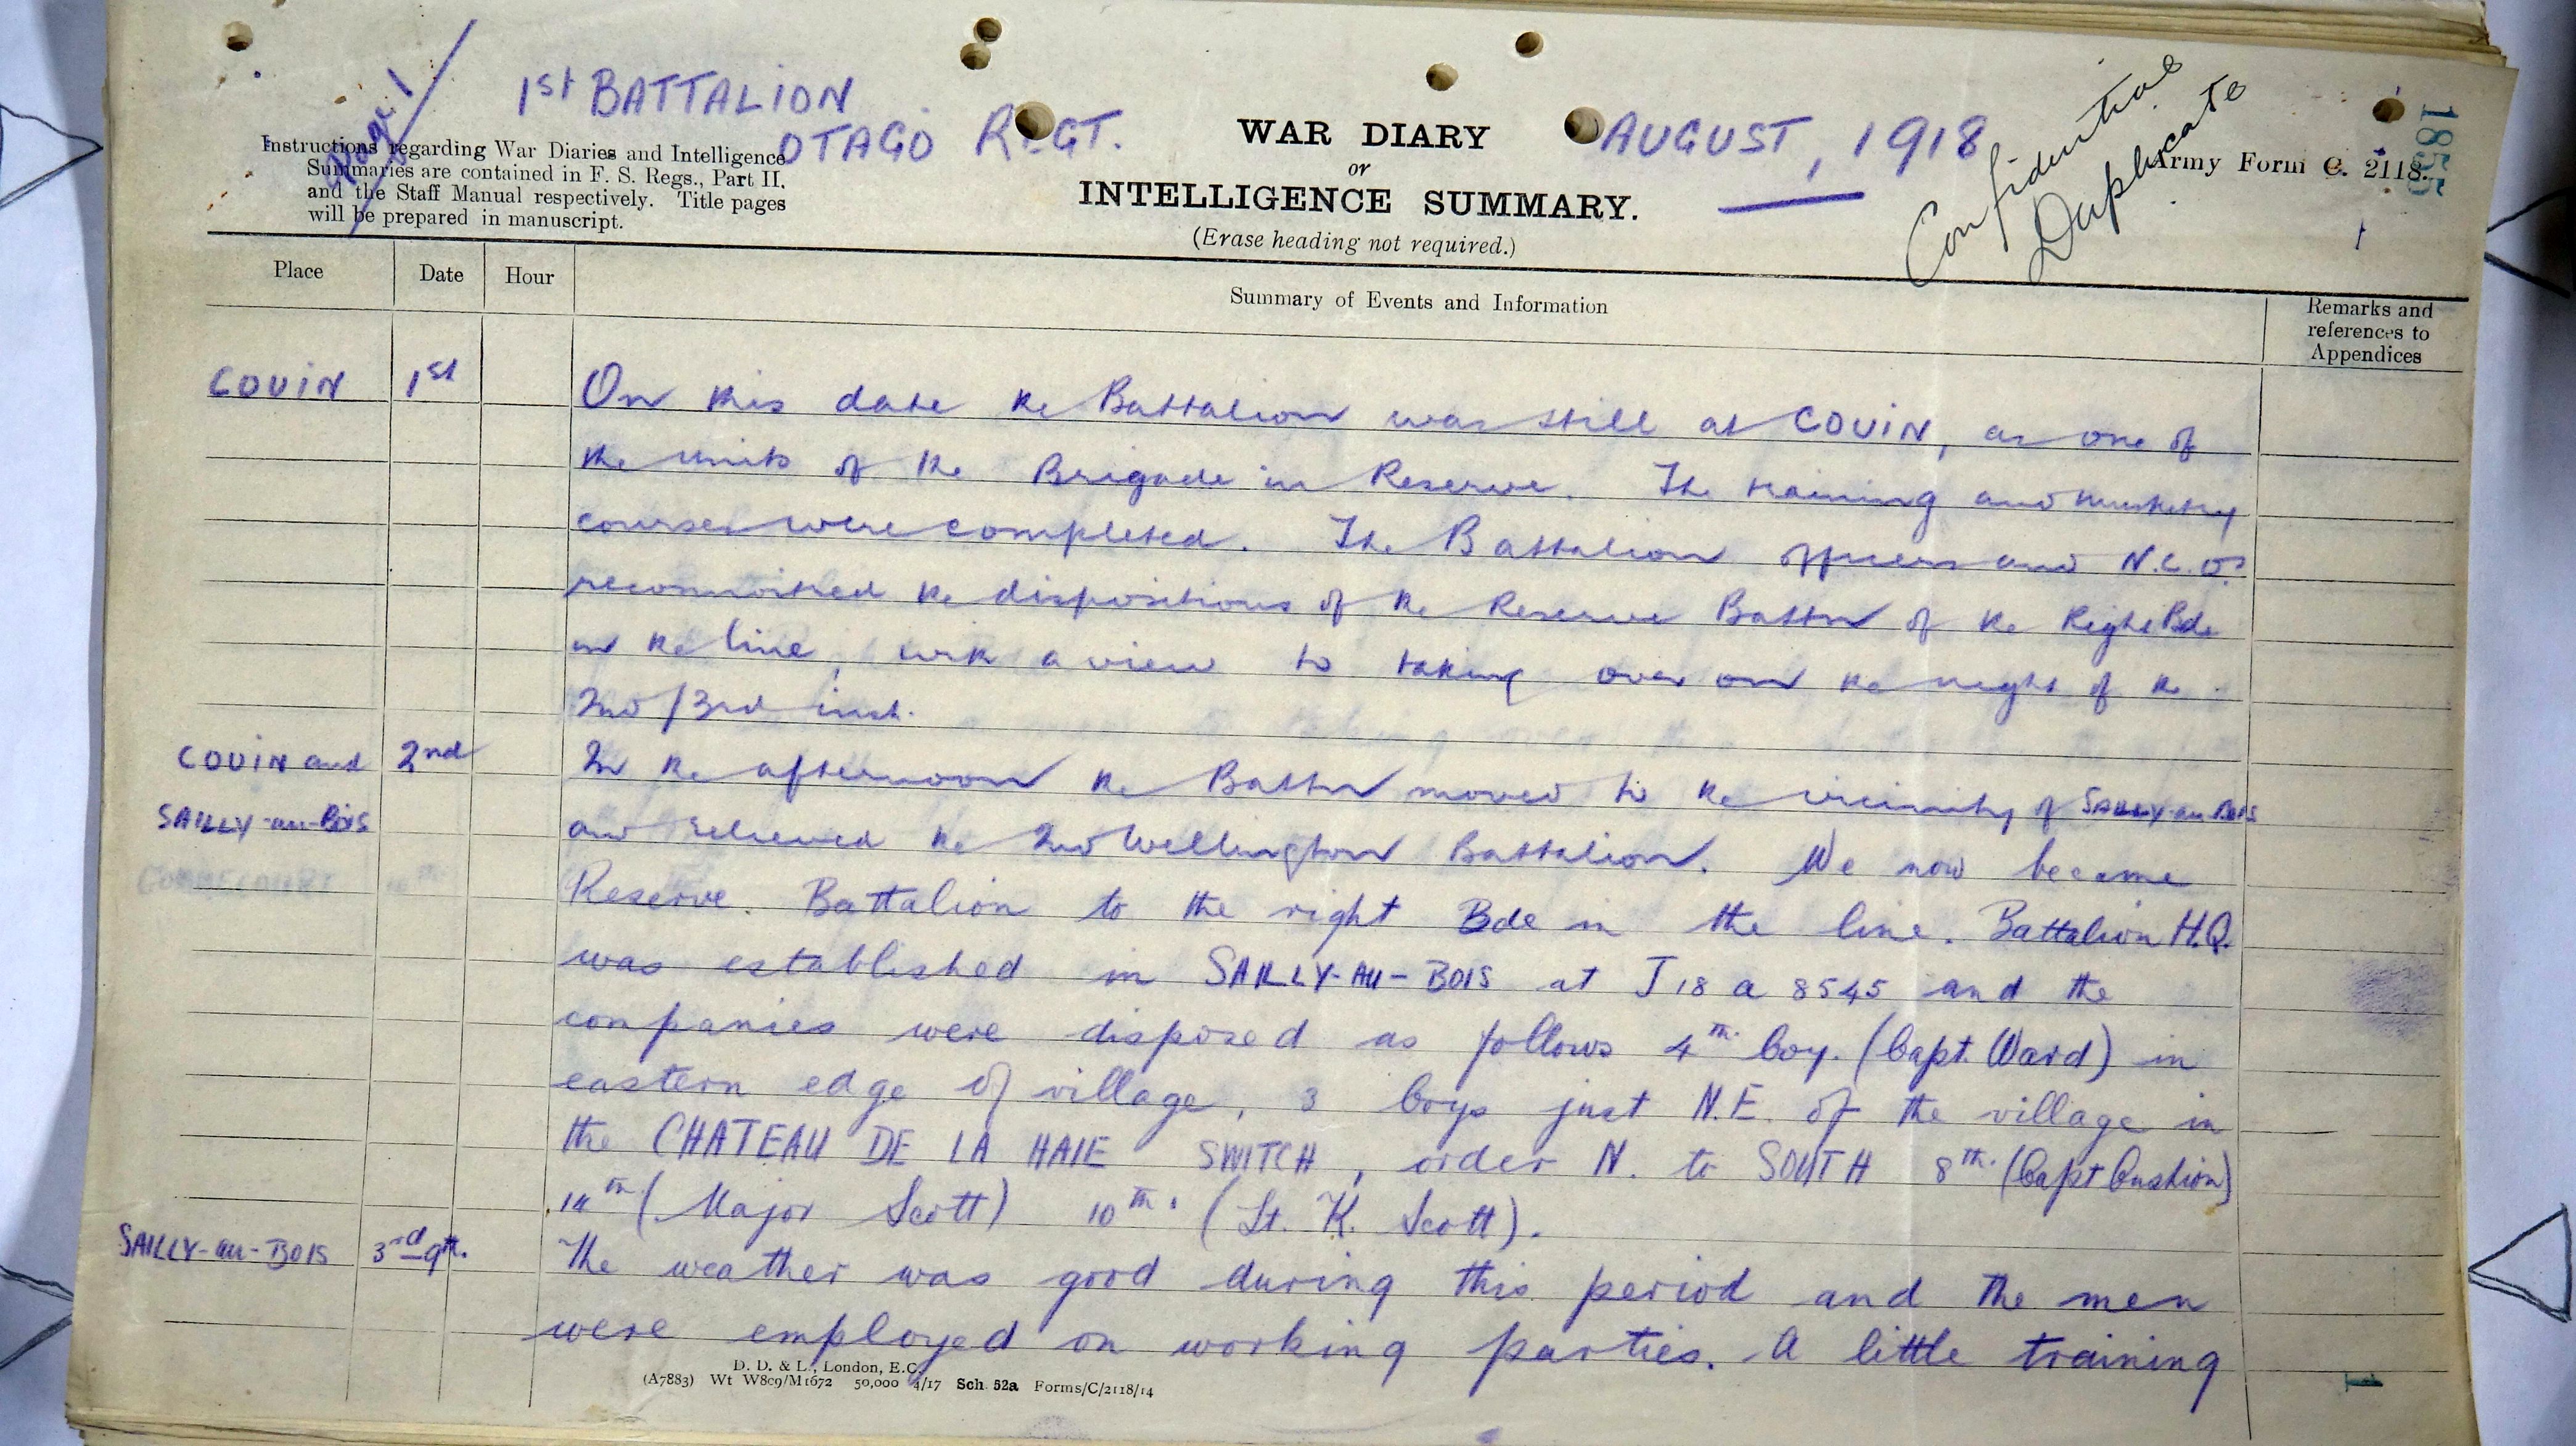 Page 1
1st BATTALION
OTAGO REGT.
WAR DIARY
or
INTELLIGENCE SUMMARY.
(Erase heading not required.)
AUGUST, 1918
Confidential
Duplicate
Army Form C. 2118.
1855
1
Instructions regarding War Diaries and Intelligence
Summaries are contained in F. S. Regs., Part II.
and the Staff Manual respectively. Title pages
will be prepared in manuscript.
Place
Date
Hour
Summary of Events and Information
Remarks and
references to
Appendices
COUIN 1st On this date the Battalion was still at COUIN, as one of
the units of the Brigade in Reserve. The training and musketry
courses were completed. The Battalion officers and N.C.Os
reconnoitred the dispositions of the Reserve Battn of the Right Bde
in the line, with a view to taking over on the night of the
2nd/3rd inst.
COUIN and 2nd In the afternoon the Battn moved to the vicinity of SAILLY-au-BOIS
SAILLY-au-BOIS and relieved the 2nd Wellington Battalion. We now became
Reserve. Battalion to the right Bde in the line. Battalion H.Q.
was established in SAILLY-AU-BOIS at J 18 a 8545 and the
companies were disposed as follows 4th Coy. (Capt. Ward) in
eastern edge of village, 3 Coys just N.E. of the village in
the CHATEAU DE LA HAIE SWITCH, order N. to SOUTH 8th. (Capt Cushion)
14th (Major Scott) 10th. (Lt. K. Scott).
SAILLY-au-BOIS 3rd-9th. The weather was good during this period and the men
were employed on working parties. A little training
D. D. & L., London, E.C.
(A7883) Wt W809/M1672 50,000 4/17 Sch. 52a Forms/C/2118/14
1